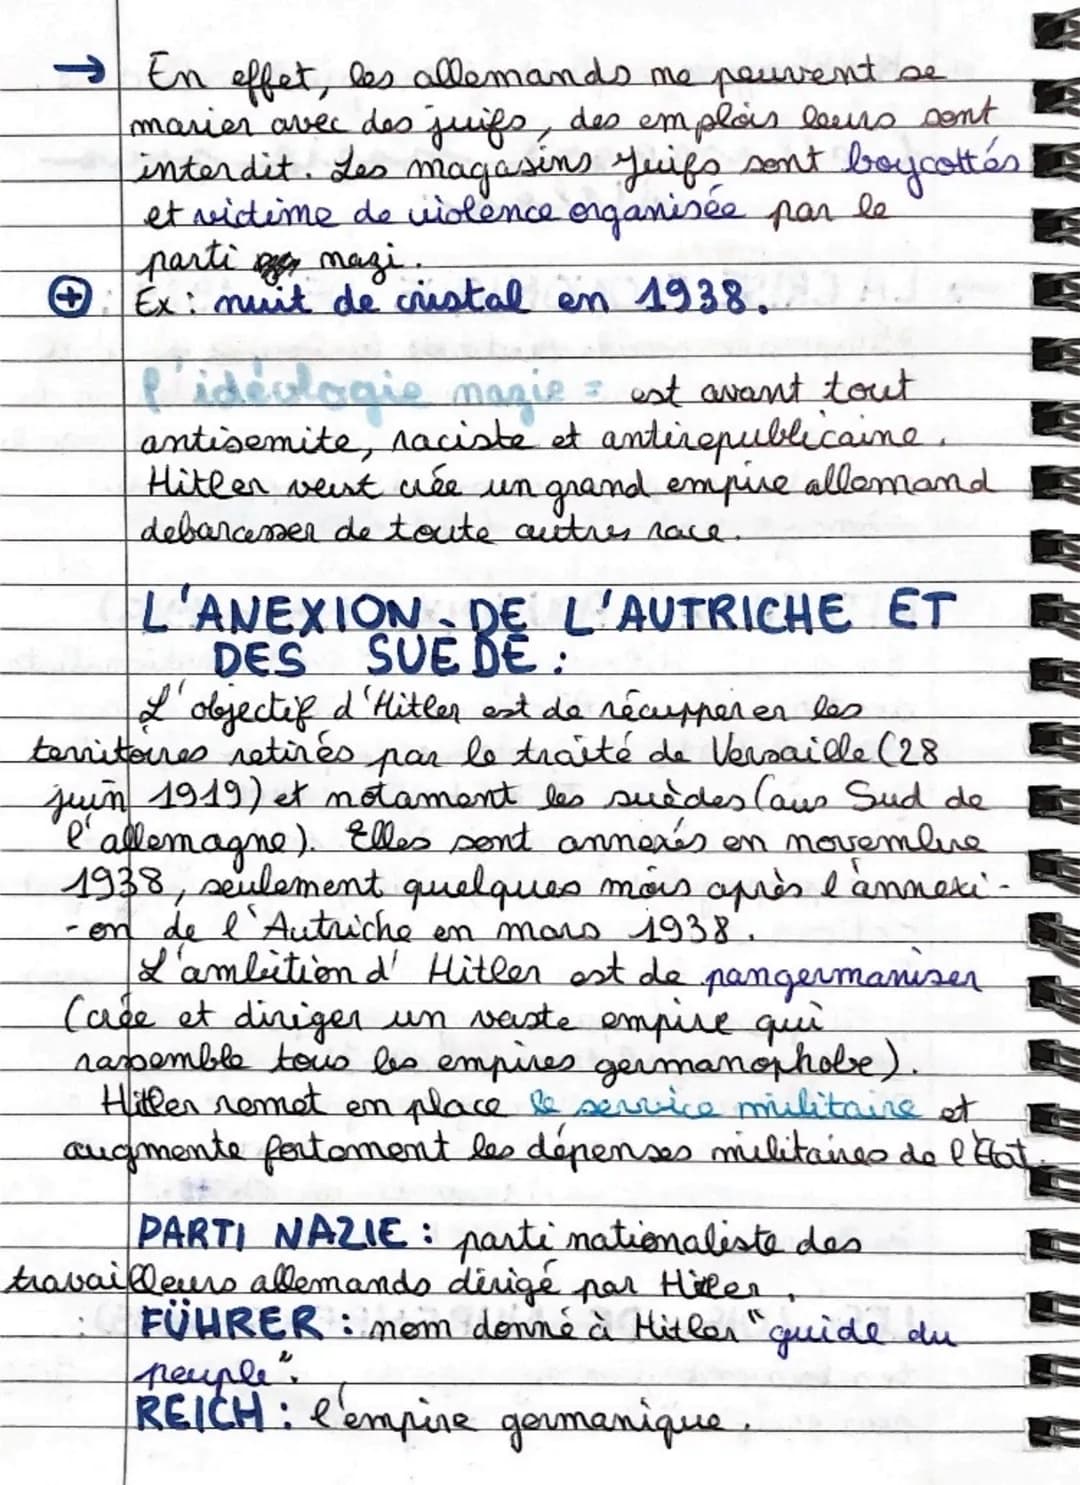 → En effet, les allemands ne peuvent se
marier avec des juifs, des emplois leurs sont
interdit. Les magasins juifs sont boycottés
et victime de violence organisée par le
parti nazi.
+ Ex : nuit de cristal en 1938.
l'idéologie nazie = est avant tout
antisemite, raciste et antirepublicaine.
Hitler veut crée un grand empire allemand
debarcasser de toute autres race.
L'ANEXION DE L'AUTRICHE ET
DES SUEDE :
L'objectif d'Hitler est de récupperer les
territoires retirés par le traité de Versaille (28
juin 1919) et notament les suèdes (aus Sud de
l'allemagne). Elles sont annexés en novembre
1938, seulement quelques mois après l'annexi-
-on de l'Autriche en mars 1938.
L'ambition d' Hitler est de pangermaniser
(crée et diriger un vaste empire qui
rassemble tous les empires germanophobe).
Hitler remet en place le service militaire et
augmente fortement les dépenses militaires de l'Etat.
PARTI NAZIE : parti nationaliste des
travailleurs allemands dirigé par Hitler.
FÜHRER : nom donné à Hitler "guide du
peuple".
REICH : l'empire germanique.